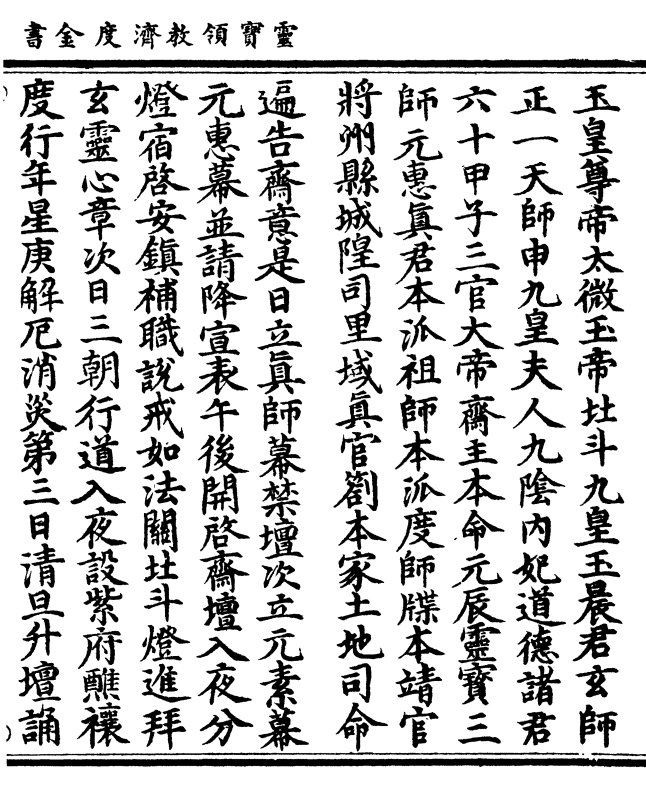 靈寶領教濟度金書
玉皇尊帝太微玉帝北斗九皇玉晨君玄師
正一天師申九皇夫人九陰內妃道德諸君
六十甲子三官大帝齋主本命元辰靈寶三
師元惠眞君本派祖師本派度師牒本靖官
將州縣城隍司里域眞官劄本家土地司命
遍告齋意是日立眞師幕禁壇次立元素幕
元惠幕並請降宣表午後開啓齋壇入夜分
燈宿啓安鎭補職說戒如法關北斗燈進拜
玄靈心章次日三朝行道入夜設紫府醮禳
度行年星庚解厄消災第三日清旦升壇誦